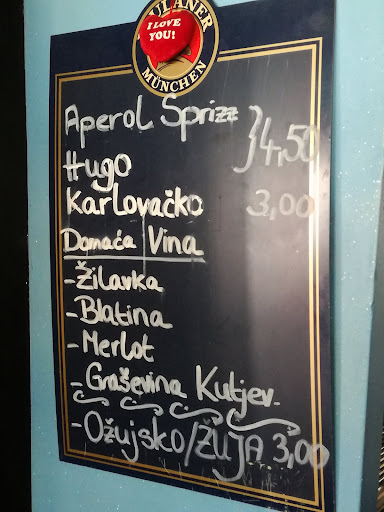 PAULANER
I LOVE
YOU!
MÜNCHEN
Aperol Sprizz
Hugo } 4,50
Karlovačko 3,00
Domaća Vina
- Žilavka
- Blatina
- Merlot
- Graševina Kutjev.
- Ožujsko/ŽUJA 3,00